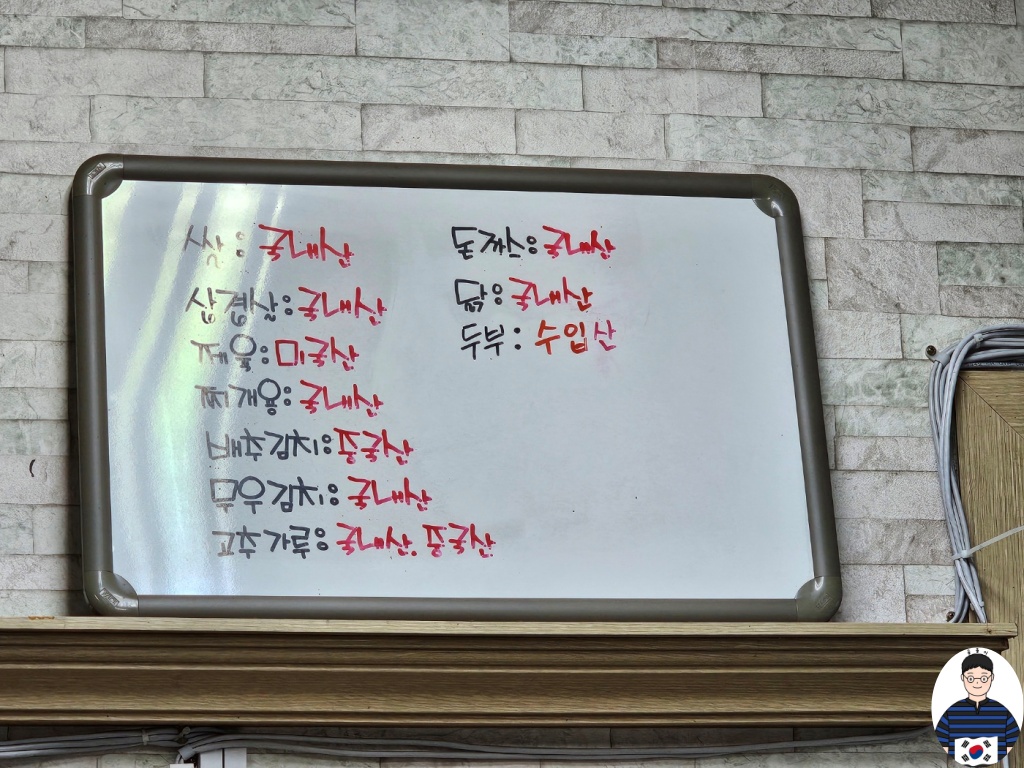 쌀: 국내산
삼겹살: 국내산
제육: 미국산
찌개용: 국내산
배추김치: 중국산
무우김치: 국내산
고추가루: 국내산. 중국산
돈까스: 국내산
닭: 국내산
두부: 수입산